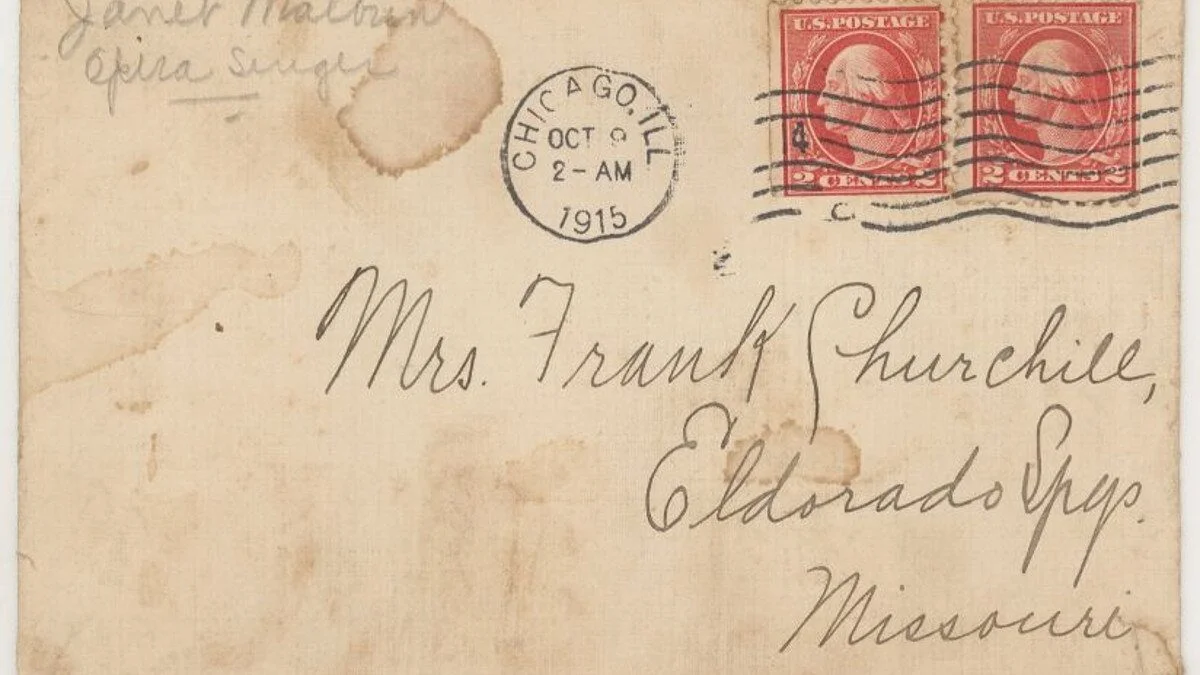 Janet Malbon
Opera Singer
CHICAGO, ILL
OCT 9
2-AM
1915
U.S. POSTAGE
2 CENTS 2
U.S. POSTAGE
2 CENTS 2
4
C
Mrs. Frank Churchill,
Eldorado Spgs.
Missouri